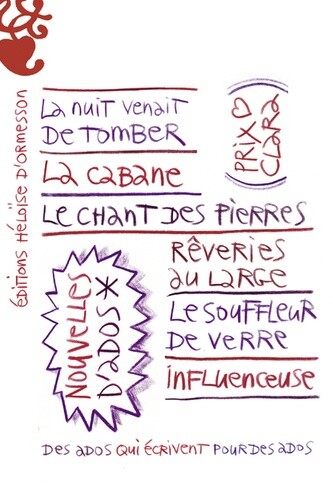 éditions Héloïse d'Ormesson
La nuit venait
de tomber
Prix
Clara
La cabane
Le chant des pierres
Rêveries
au large
Nouvelles
d'ados*
Le souffleur
de verre
Influenceuse
Des ados qui écrivent pour des ados